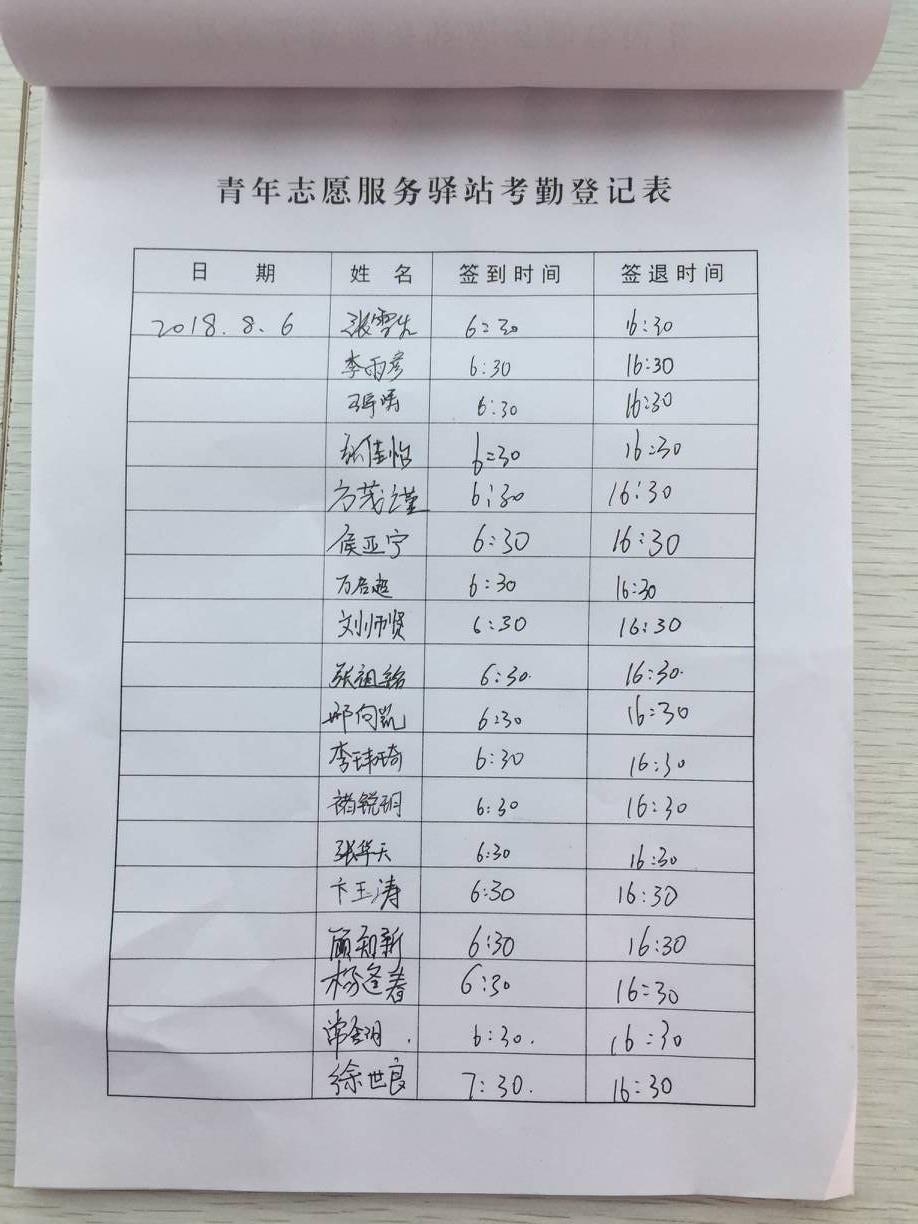 青年志愿服务驿站考勤登记表
日 期 姓 名 签到时间 签退时间
2018.8.6 6:30 16:30
李雨彦 6:30 16:30
6:30 16:30
张佳怡 6:30 16:30
方茂谨 6:30 16:30
侯亚宁 6:30 16:30
6:30 16:30
刘师贤 6:30 16:30
张祖铭 6:30 16:30
邢向凯 6:30 16:30
李玮琦 6:30 16:30
褚锐玥 6:30 16:30
张华天 6:30 16:30
卞玉涛 6:30 16:30
顾利新 6:30 16:30
杨逢春 6:30 16:30
6:30. 16:30
徐世良 7:30. 16:30